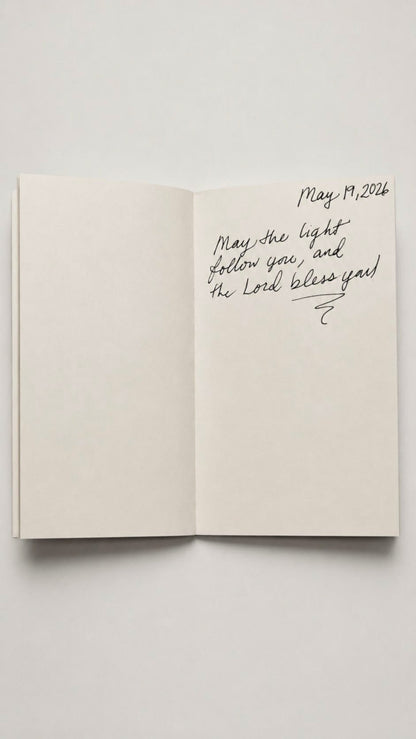 May 19, 2026
May the light
follow you, and
the Lord bless you!